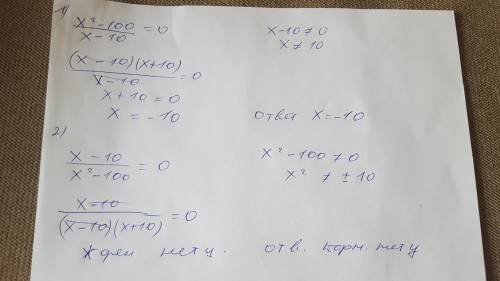 1)
x²-100 / x-10 = 0    x-10 ≠ 0
x ≠ 10
(x-10)(x+10) / x-10 = 0
x+10 = 0
x = -10    отвт x=-10
2)
x-10 / x²-100 = 0    x²-100 ≠ 0
x² ≠ ±10
x-10 / (x-10)(x+10) = 0
нету.    отв. корн. нету